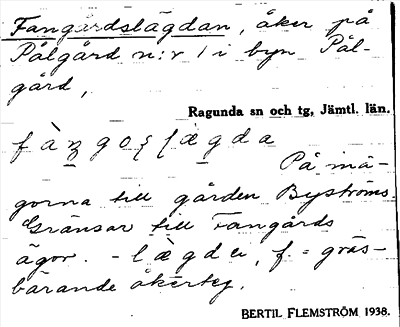 Fangårdslägdan, åker på
Pålgård n:r 1 i byn Pål-
gård,
Ragunda sn och tg, Jämtl. län.
På mä-
gorna till gården Byströms.
Gränsar till Fangårds
ägor. - lægda, f. = gräs-
bärande åkerteg.
BERTIL FLEMSTRÖM 1938.